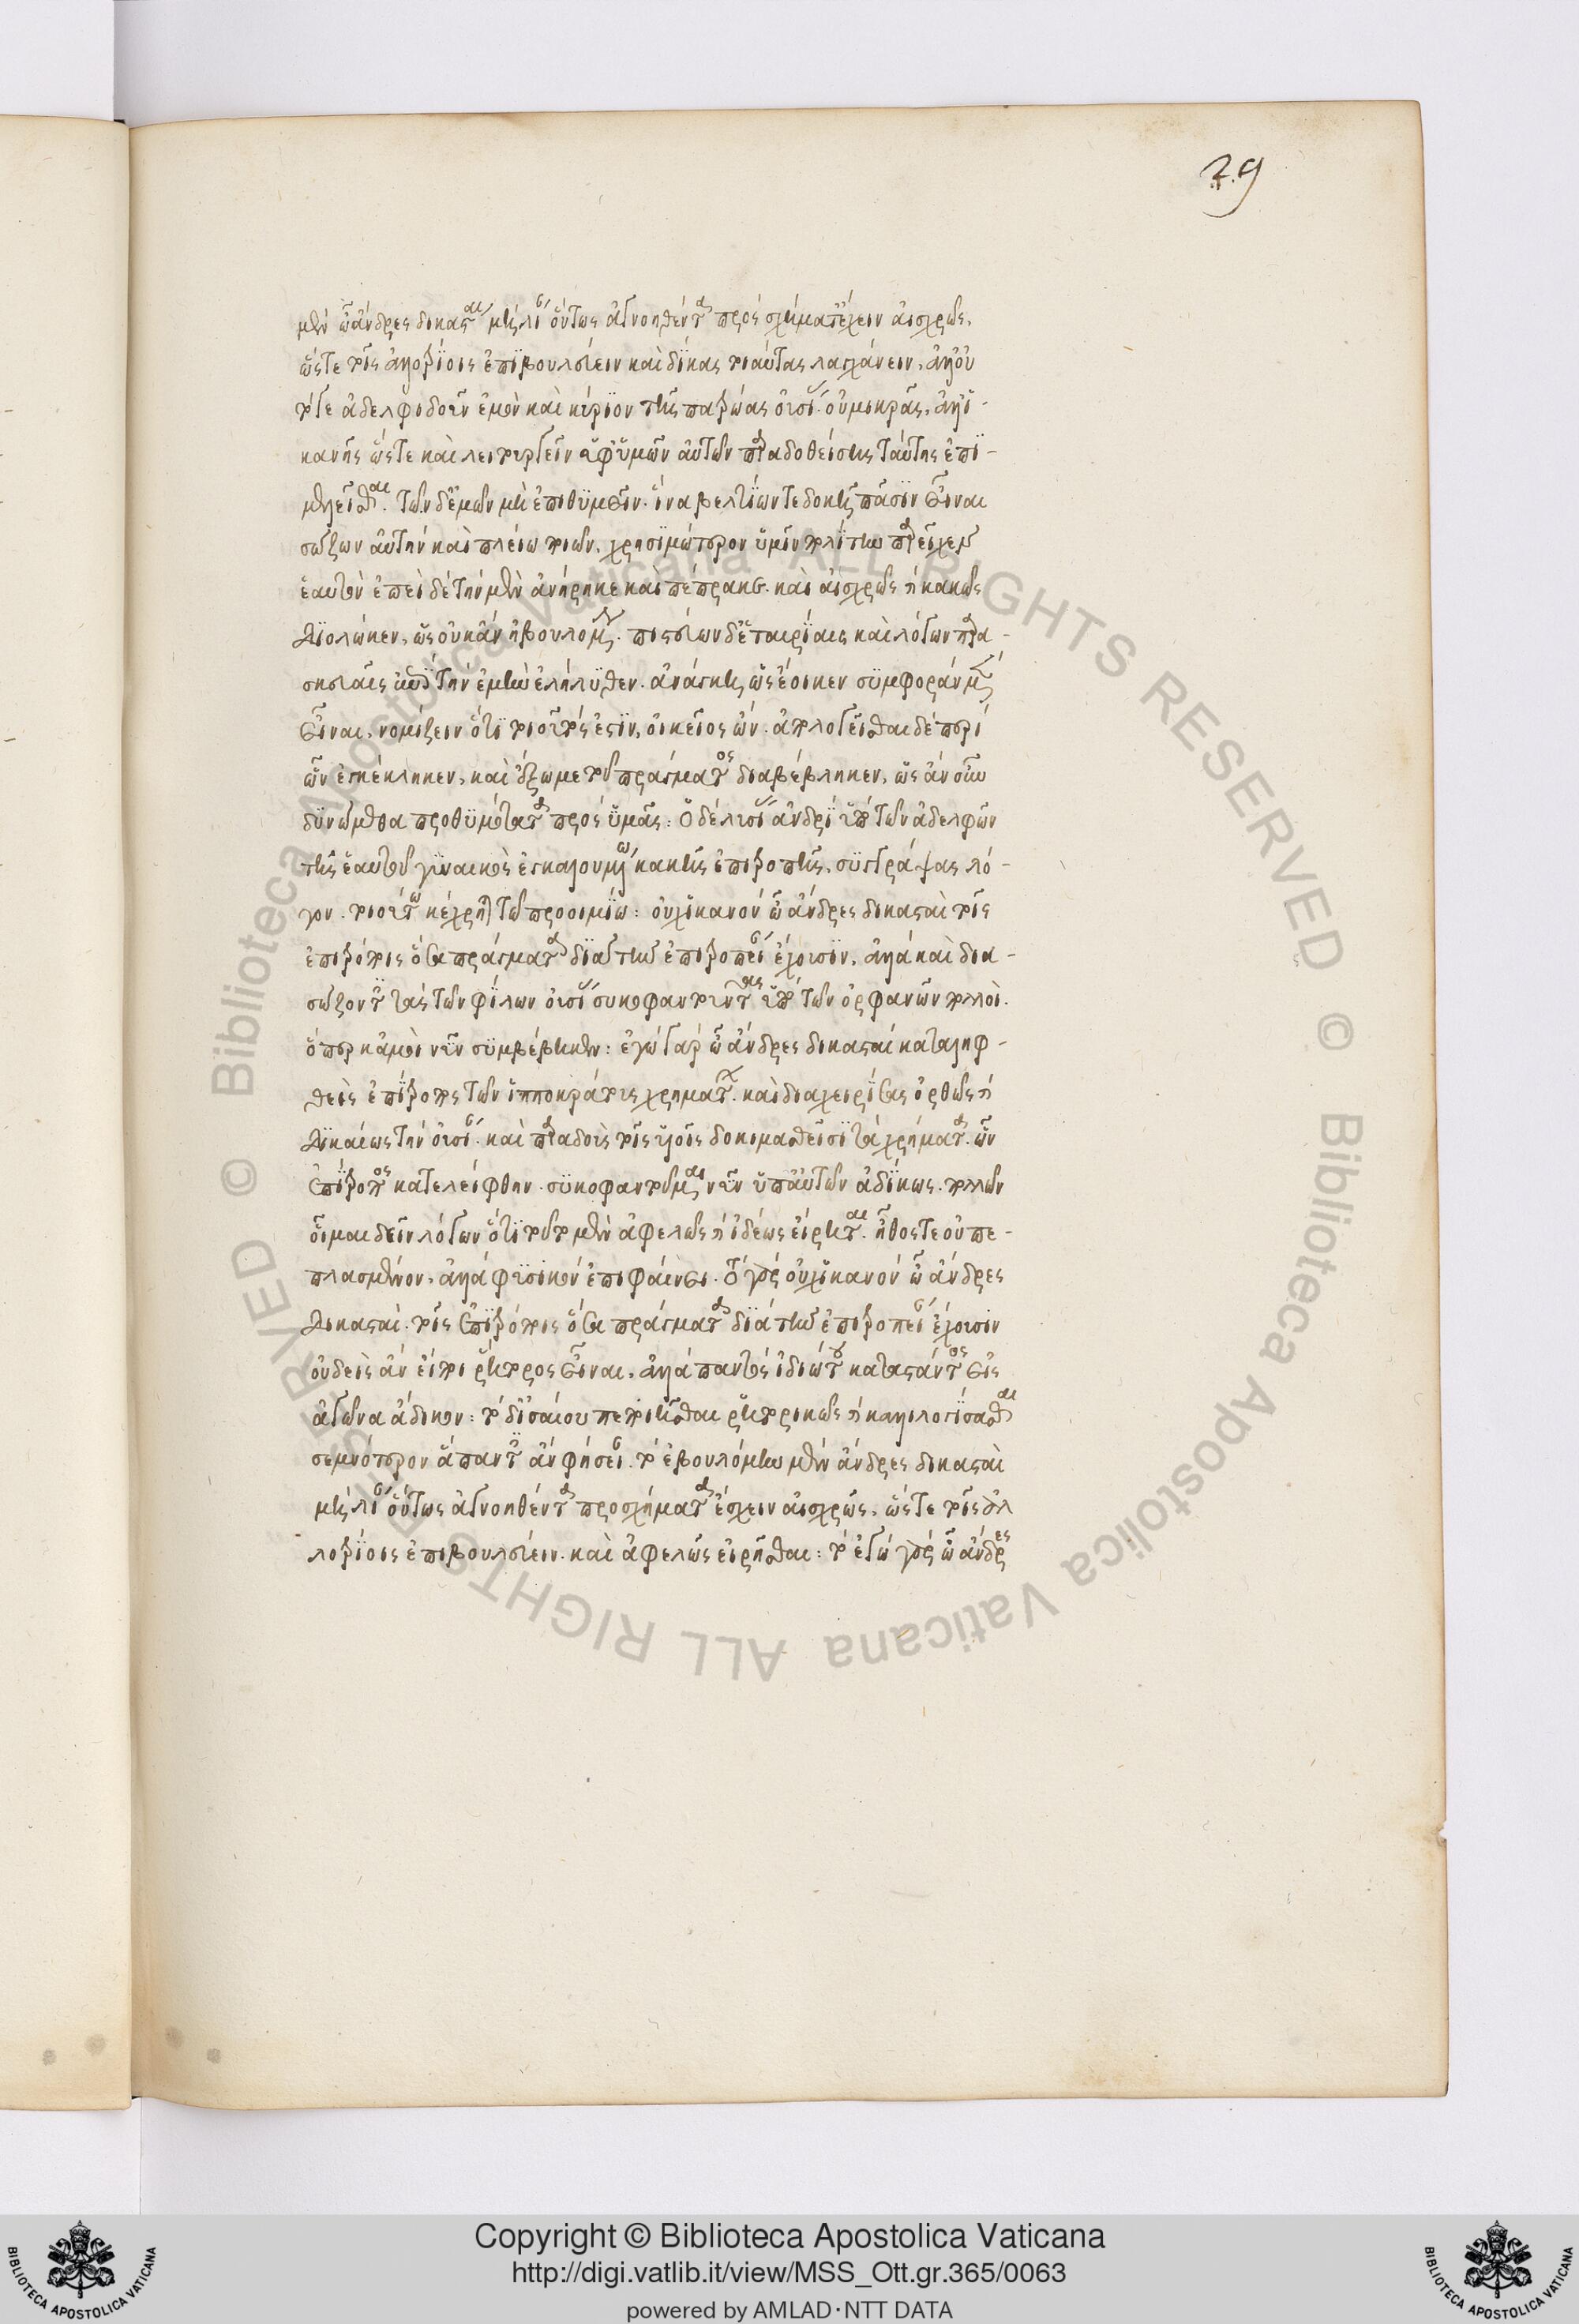 29
μὲν ὦ ἄνδρες δικασταὶ μὴ λί οὕτως ἀγνοηθέντα πρὸς σχήματ' ἔχειν αἰσχρῶς.
ὥστε τοῖς ἀλλοτρίοις ἐπιβουλεύειν καὶ δίκας τοιαύτας λαγχάνειν. ἀλλ' οὐ
τόγε ἀδελφιδοῦν ἐμὸν καὶ κύριον τῆς πατρώας οὐσίας οὐ μικρᾶς. ἀλλ' ἱ-
κανῆς ὥστε καὶ λειτουργεῖν ὑφ' ὑμῶν αὐτῶν παραδοθείσης ταύτης ἐπι-
μελεῖσθαι. τῶν δ' ἐμῶν μὴ ἐπιθυμεῖν. ἵνα βελτίων τε δοκῇ πᾶσιν εἶναι
σώζων αὐτὴν καὶ πλείω ποιῶν. χρησιμώτερον ὑμῖν πολίτην παρεῖχεν
ἑαυτὸν ἐπεὶ δὲ τὴν μὲν ἀνῄρηκε καὶ πέπρακε. καὶ αἰσχρῶς καὶ κακῶς
διολώκεν, ὡς οὐκ ἂν ἠβουλόμην. πιστεύων δ' ἑταιρίαις καὶ λόγων παρα-
σκευαῖς ἐπὶ τὴν ἐμὴν ἐλήλυθεν. ἀνάγκη, ὡς ἔοικεν συμφορὰν μὲν
εἶναι, νομίζειν ὅτι τοιοῦτός ἐστιν, οἰκεῖος ὤν. ἀπολογεῖσθαι δὲ περὶ
ὧν ἐγκέκληκεν, καὶ ἔξω με τοῦ πράγματος διαβέβληκεν, ὡς ἂν οἷοι
δυνώμεθα προθυμότατα πρὸς ὑμᾶς: Ὁ δὲ λυσίας ἀνδρὶ ὑπὸ τῶν ἀδελφῶν
τῆς ἑαυτοῦ γυναικὸς ἐγκαλουμένῳ κακῆς ἐπιτροπῆς. συγγράψας λό-
γον. τοιούτῳ κέχρηται τῷ προοιμίῳ: οὐχ' ἱκανὸν ὦ ἄνδρες δικασταὶ τοῖς
ἐπιτρόποις ὅσα πράγματα διὰ τὴν ἐπιτροπείαν ἔχουσιν. ἀλλὰ καὶ δια-
σώζοντες τὰς τῶν φίλων οὐσίας συκοφαντοῦνται ὑπὸ τῶν ὀρφανῶν πολλοί.
ὅπερ κἀμοὶ νῦν συμβέβηκεν: ἐγὼ γὰρ ὦ ἄνδρες δικασταὶ καταλειφ-
θεὶς ἐπίτροπος τῶν ἱπποκράτους χρημάτων. καὶ διαχειρίσας ὀρθῶς καὶ
δικαίως τὴν οὐσίαν. καὶ παραδοὺς τοῖς υἱοῖς δοκιμασθεῖσι τὰ χρήματα. ὧν
ἐπίτροπος κατελείφθην. συκοφαντοῦμαι νῦν ὑπ' αὐτῶν ἀδίκως. πολλῶν
οἶμαι δεῖν λόγων ὅτι τοῦτο μὲν ἀφελῶς καὶ ἡδέως εἴρηται. ἦθος τε οὐ πε-
πλασμένον, ἀλλὰ φυσικὸν ἐπιφαίνει. τὸ γὰρ οὐχ' ἱκανὸν ὦ ἄνδρες
δικασταὶ. τοῖς ἐπιτρόποις ὅσα πράγματα διὰ τὴν ἐπιτροπείαν ἔχουσιν
οὐδεὶς ἂν εἴποι ῥήτορος εἶναι, ἀλλὰ παντὸς ἰδιώτου καταστάντος εἰς
ἀγῶνα ἄδικον: τὸ δ' ἰσαίου πεποιῆσθαι ῥητορικῶς καὶ κεκαλλιλογῆσθαι
σεμνότερον ἅπαντες ἂν φήσειαν. τὸ ἐβουλόμην μὲν ἄνδρες δικασταὶ
μὴ λί οὕτως ἀγνοηθέντα προσχήματα ἔσχειν αἰσχρῶς. ὥστε τοῖς ἀλ
λοτρίοις ἐπιβουλεύειν. καὶ ἀφελῶς εἰρῆσθαι: τὸ ἐγὼ γὰρ ὦ ἄνδρες
Copyright © Biblioteca Apostolica Vaticana
http://digi.vatlib.it/view/MSS_Ott.gr.365/0063
powered by AMLAD·NTT DATA
BIBLIOTECA APOSTOLICA VATICANA
BIBLIOTECA APOSTOLICA VATICANA
© Biblioteca Apostolica Vaticana ALL RIGHTS RESERVED © Biblioteca Apostolica Vaticana ALL RIGHTS RESERVED